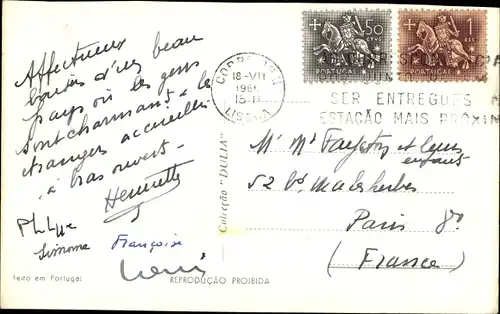 Affectueux
baisers d'un beau
pays où les gens
sont charmants & les
étrangers accueillis
à bras ouverts -
Henriette
Philippe
Simone
Françoise
feito em Portugal
REPRODUÇÃO PROIBIDA
Colecção "DULIA"
50
CTVS
PORTUGAL
1
ESC
PORTUGAL
18-VII
LISBOA
SER ENTREGUES
ESTAÇÃO MAIS PRÓXIM
Mr Mme et leurs
enfants
52 bd Malesherbes
Paris 8e.
(France)